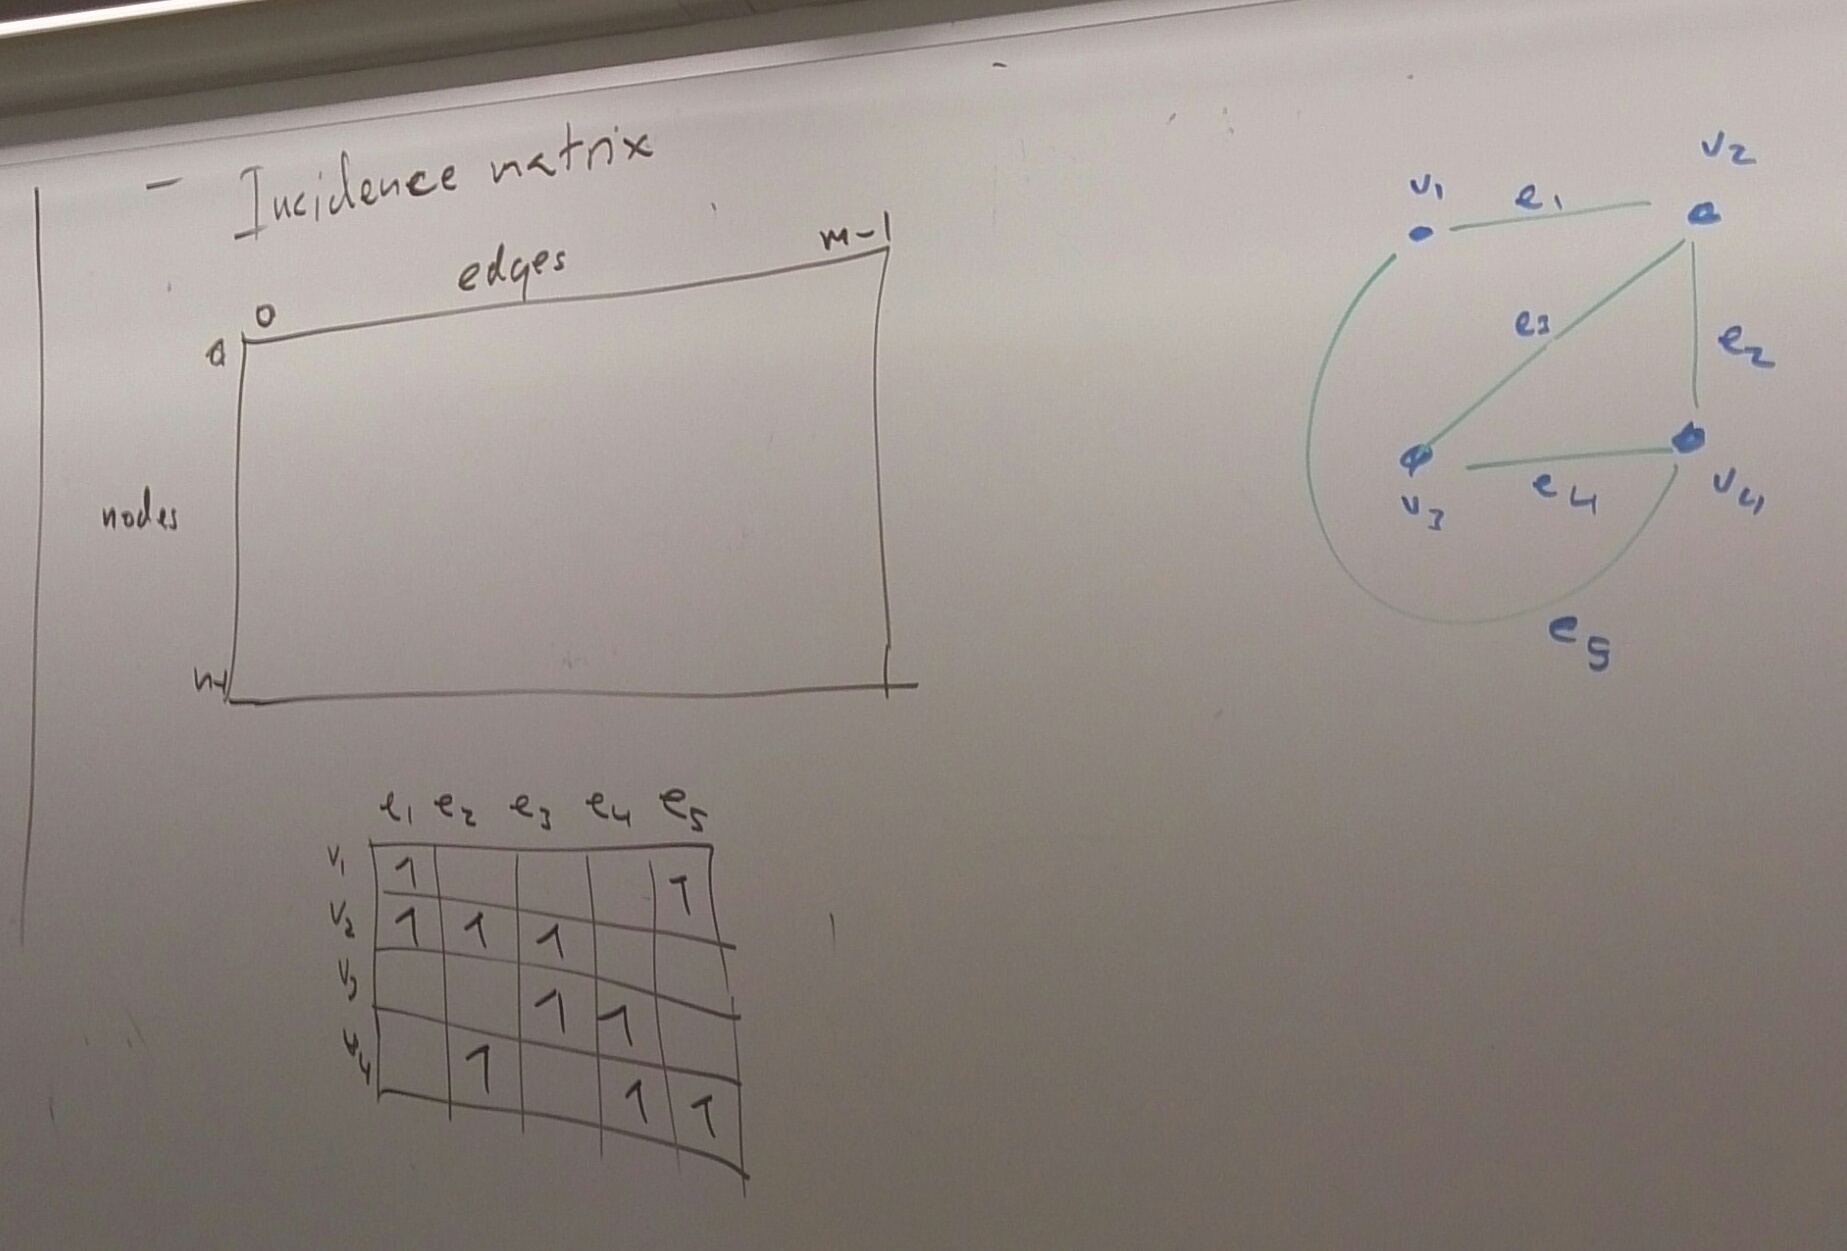 - Incidence matrix
edges
0 m-1
0
nodes
n-1
e1 e2 e3 e4 e5
v1 1 1
v2 1 1 1
v3 1 1
v4 1 1 1
v1 e1 v2
e3 e2
v3 e4 v4
e5